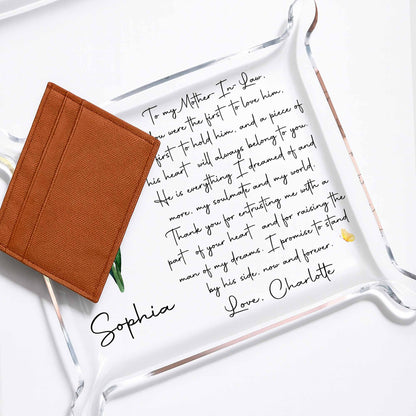 To my Mother In Law,
were the first to love him,
first to hold him, and a piece of
his heart will always belong to you.
He is everything I dreamed of and
more, my soulmate and my world.
Thank you for entrusting me with a
part of your heart and for raising the
man of my dreams. I promise to stand
by his side, now and forever.
Love, Charlotte
Sophia